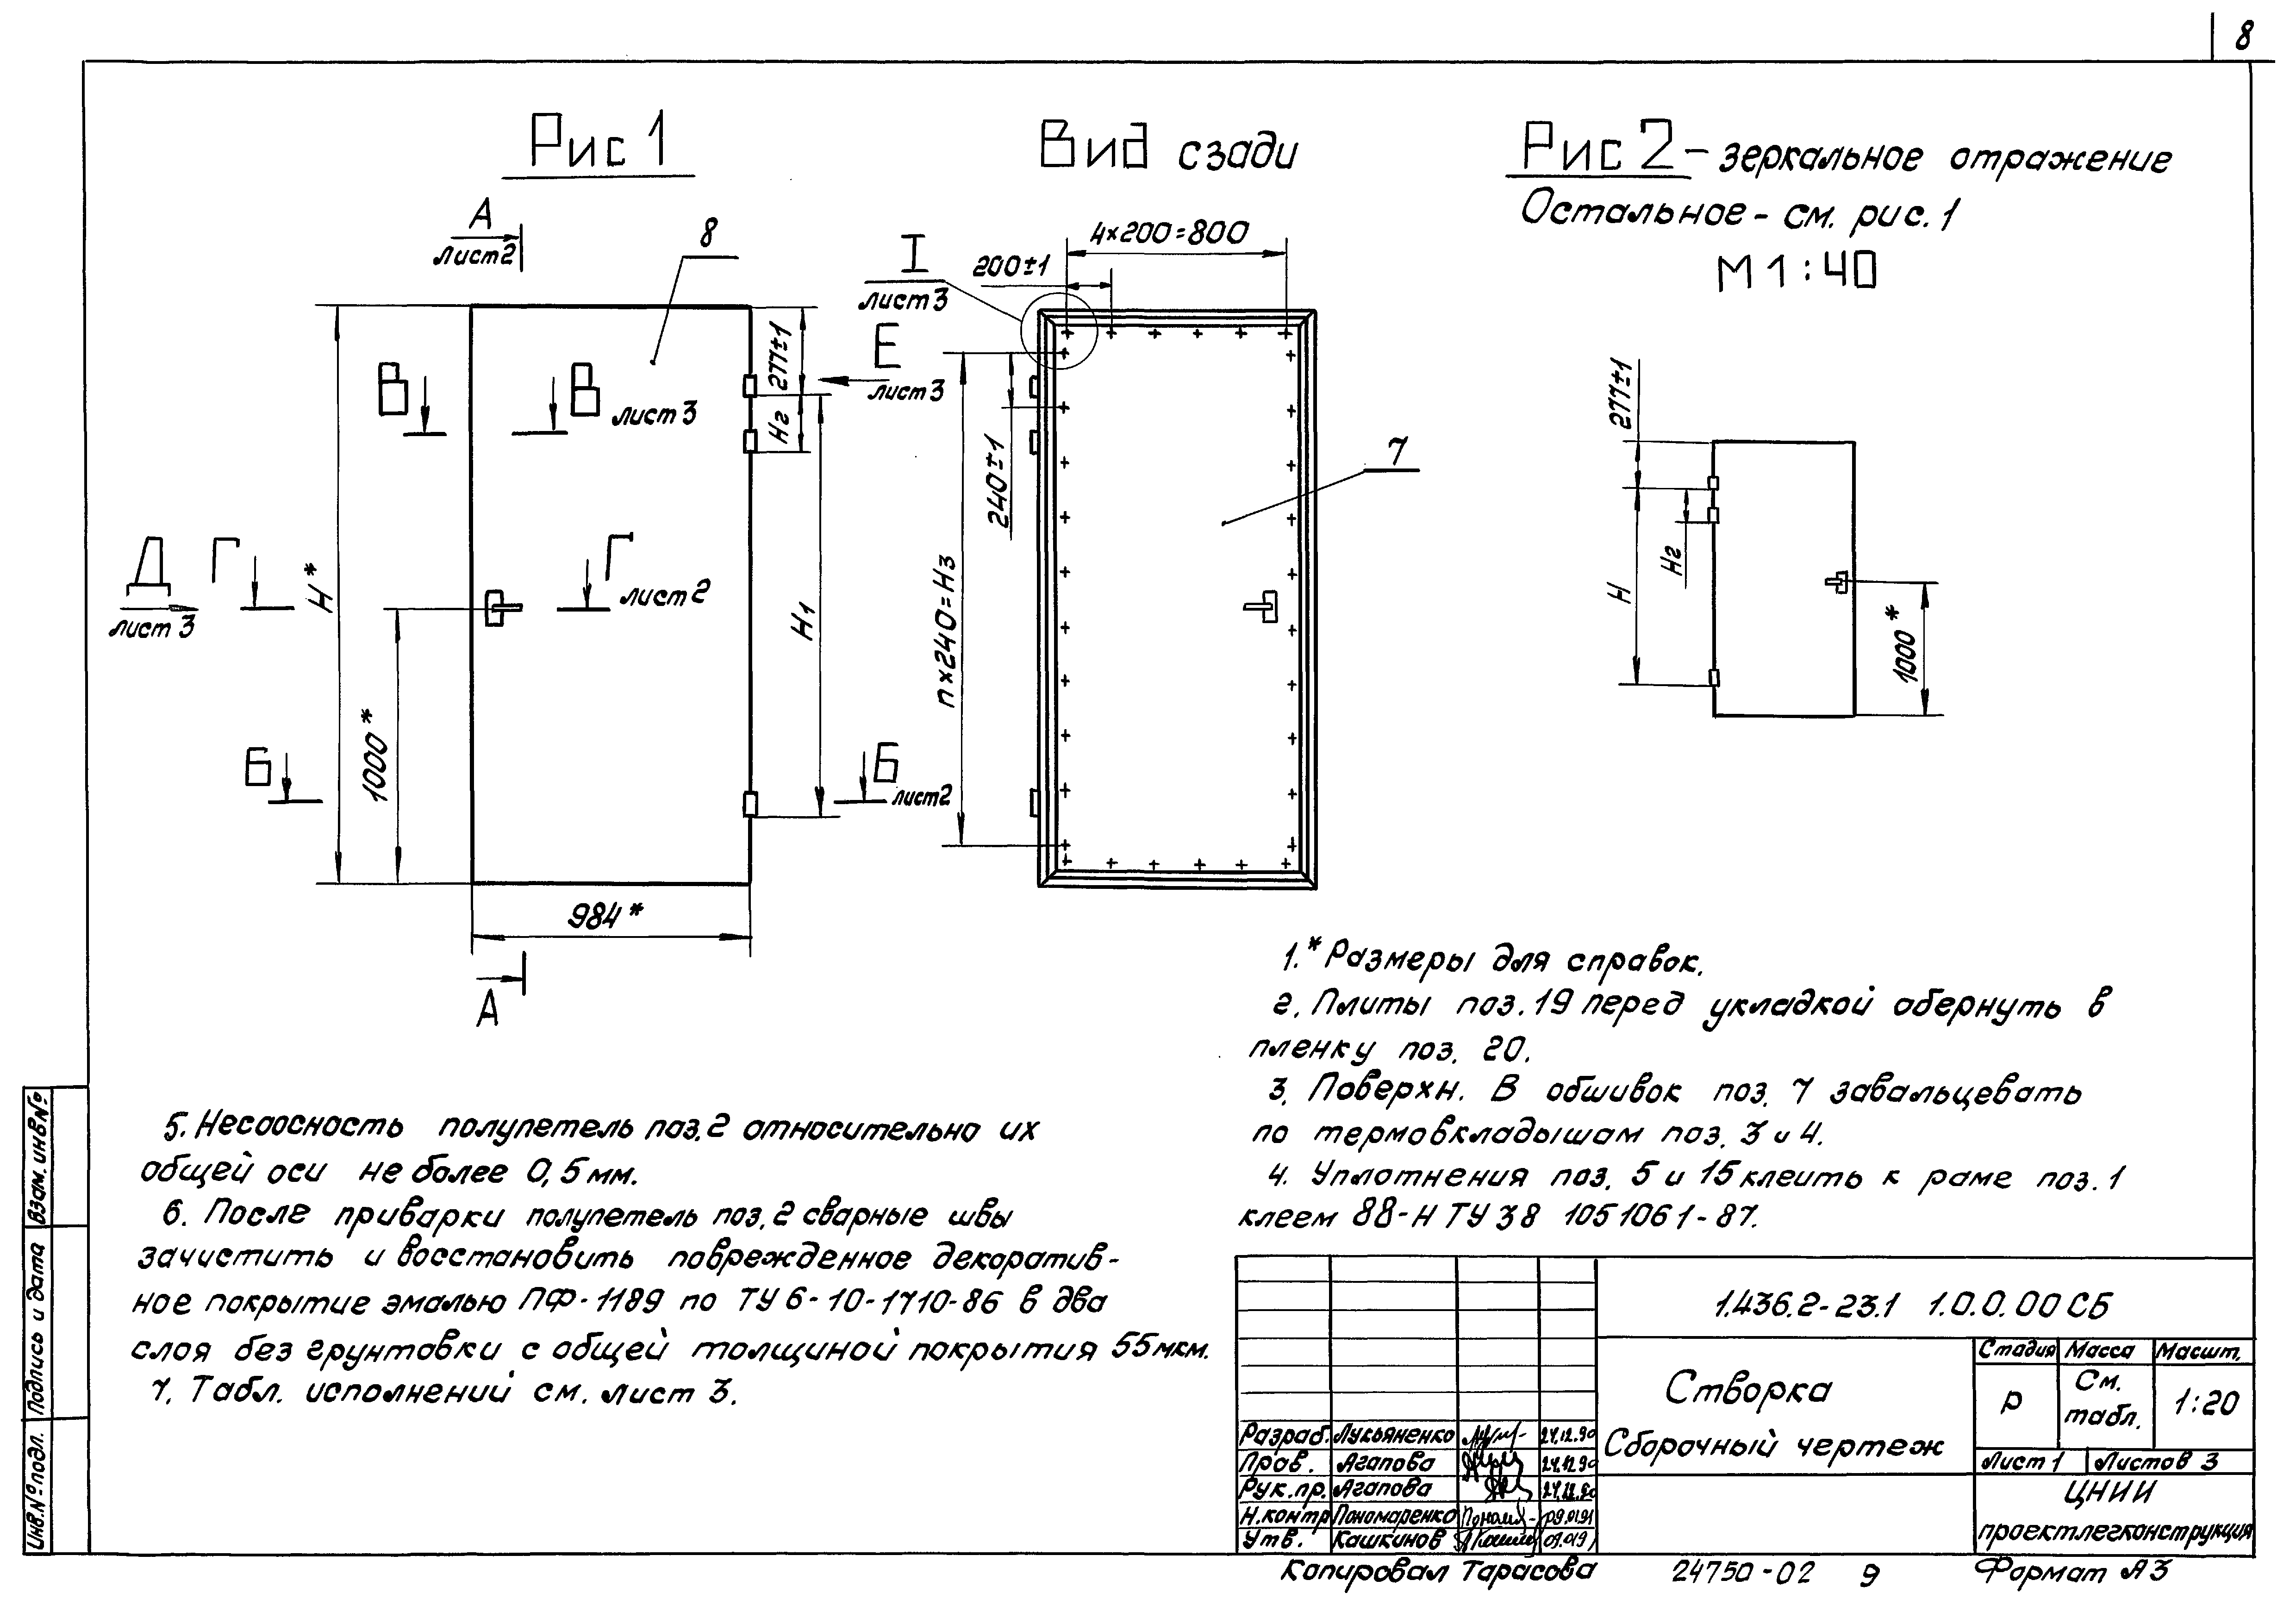 8
Рис 1
Вид сзади
Рис 2 - зеркальное отражение
Остальное - см. рис. 1
М 1 : 40
А
лист 2
8
I
лист 3
4×200=800
200±1
277±1
Е
лист 3
В
В
лист 3
Н2
240±1
7
277±1
Д
лист 3
Г
Г
лист 2
Н*
Н1
n×240=Н3
Н
Н2
1000*
1000*
Б
Б
лист 2
984*
А
1.* Размеры для справок.
2. Плиты поз. 19 перед укладкой обернуть в
пленку поз. 20.
3. Поверхн. В обшивок поз. 7 завальцевать
по термовкладышам поз. 3 и 4.
4. Уплотнения поз. 5 и 15 клеить к раме поз. 1
клеем 88-Н ТУ 38 1051061-87.
5. Несоосность полупетель поз. 2 относительно их
общей оси не более 0,5 мм.
6. После приварки полупетель поз. 2 сварные швы
зачистить и восстановить поврежденное декоратив-
ное покрытие эмалью ПФ-1189 по ТУ 6-10-1710-86 в два
слоя без грунтовки с общей толщиной покрытия 55 мкм.
7. Табл. исполнений см. лист 3.
Взам. инв. №
Подпись и дата
Инв. № подл.
1.436.2-23.1 1.0.0.00 СБ
Створка
Сборочный чертеж
Стадия Масса Масшт.
Р См. табл. 1:20
Лист 1 Листов 3
ЦНИИ
проектлегконструкция
Разраб. Лукьяненко 24.12.90
Пров. Агапова 24.12.90
Рук. пр. Агапова 24.12.90
Н. контр Пономаренко 09.01.91
Утв. Кашкинов 09.0191
Копировал Тарасова 24750-02 9 Формат А3